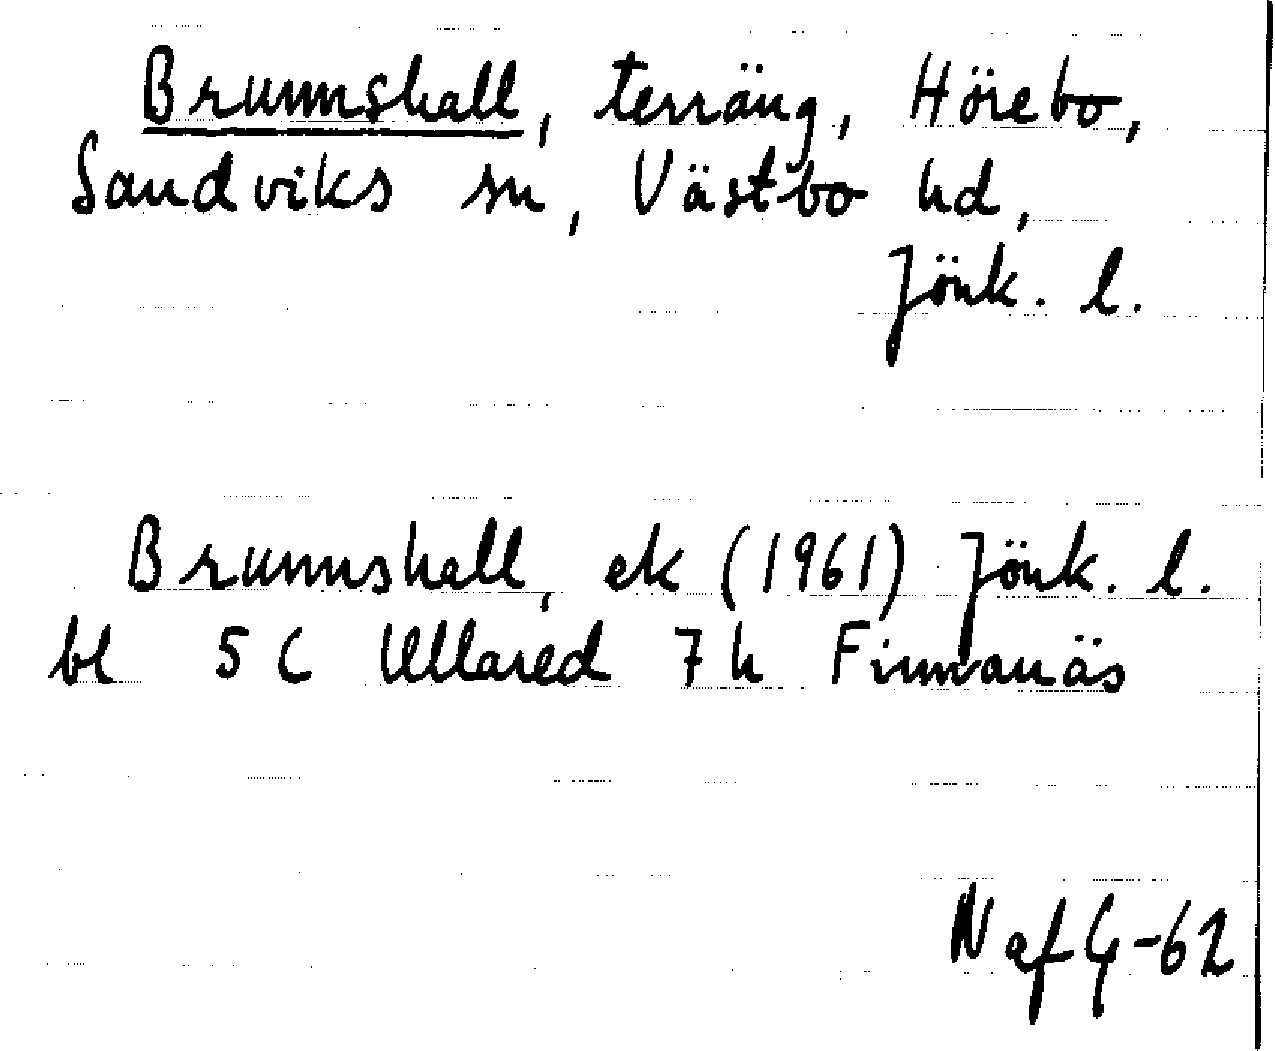 Brunnshall, terräng, Hörebo,
Sandviks sn, Västbo hd,
Jönk. l.
Brunnshall, ek (1961) Jönk. l.
bl 5 C Ullared 7 h Finnanäs
N af G-62